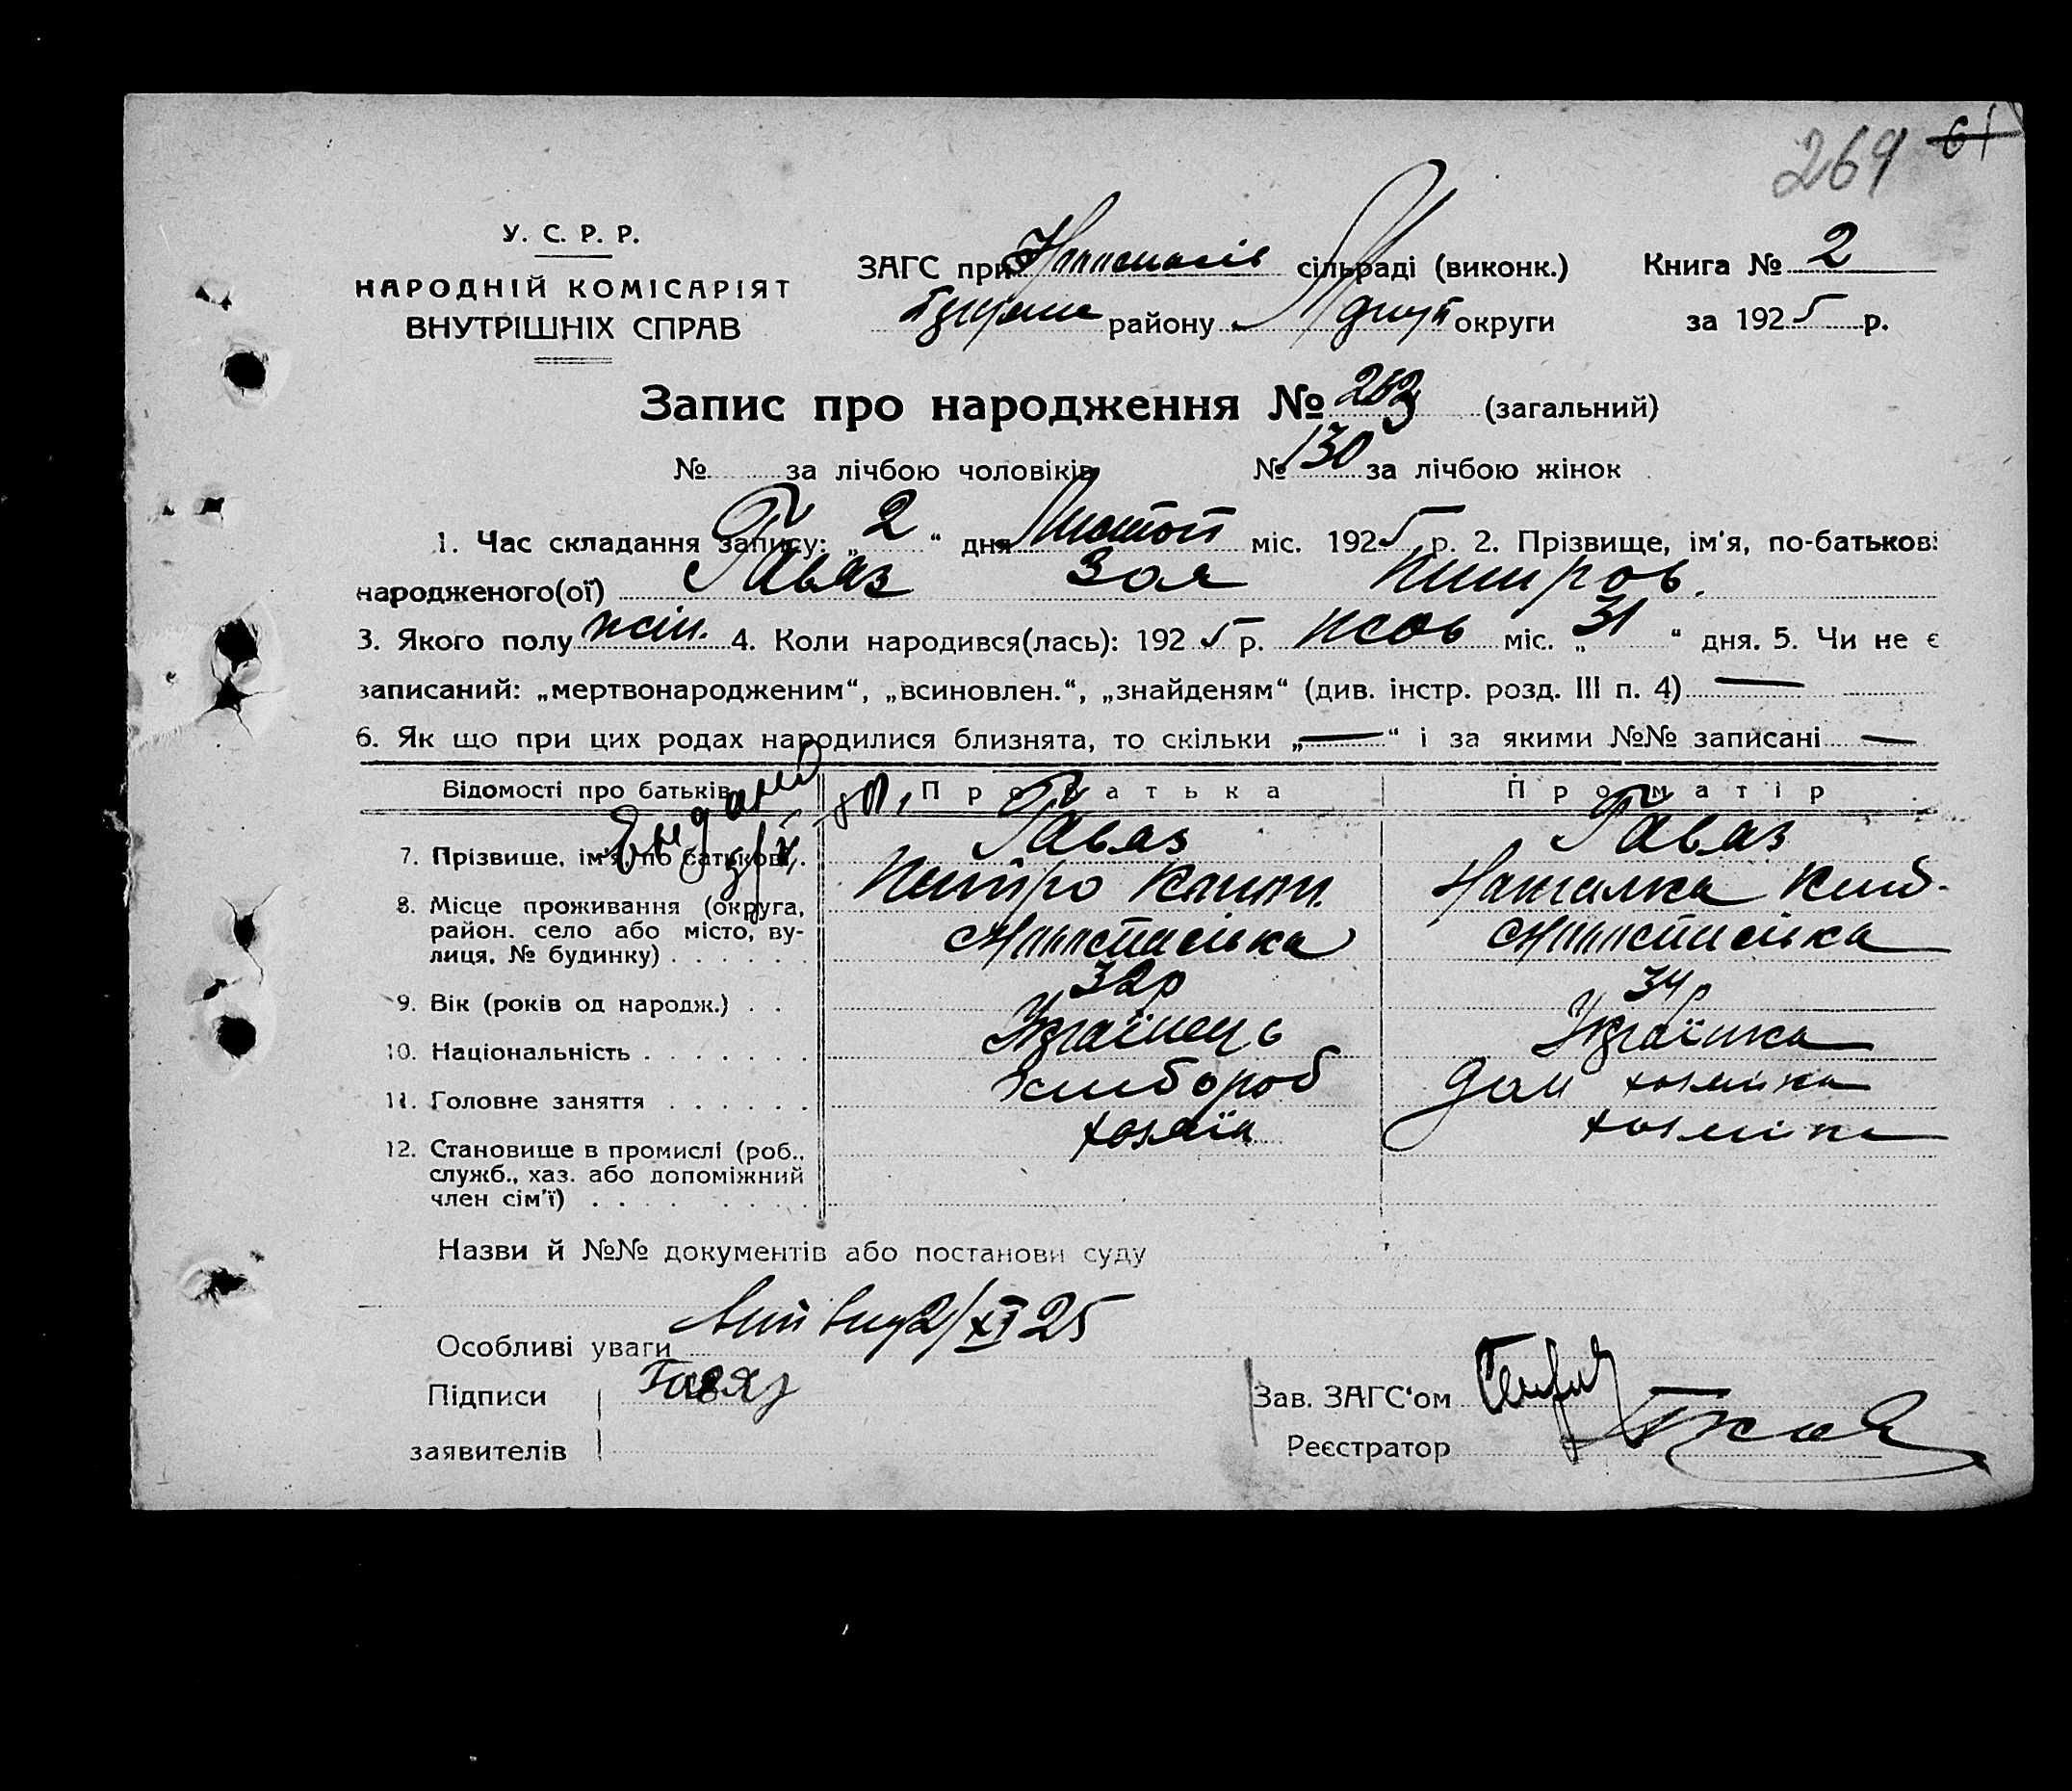 269 61
У. С. Р. Р.
НАРОДНІЙ КОМІСАРІЯТ
ВНУТРІШНІХ СПРАВ
ЗАГС при сільраді (виконк.) Книга № 2
району округи за 1925 р.
Запис про народження № 263 (загальний)
№ за лічбою чоловіків № 130 за лічбою жінок
1. Час складання запису: „ 2 “ дня Листоп міс. 1925 р. 2. Прізвище, ім'я, по-батькові
народженого(ої) Гаваз Зоя Питров.
3. Якого полу жін. 4. Коли народився(лась): 1925 р. Жов міс. „ 31 “ дня. 5. Чи не є
записаний: „мертвонародженим“, „всиновлен.“, „знайденям“ (див. інстр. розд. III п. 4) —
6. Як що при цих родах народилися близнята, то скільки „—“ і за якими №№ записані —
Відомості про батьків Про батька Про матір
7. Прізвище, ім'я, по батькові. Гаваз Гаваз
Питро Наталка
8. Місце проживання (округа,
район. село або місто, ву-
лиця, № будинку)
9. Вік (років од народж.) 32р 34р
10. Національність Українець Українка
11. Головне заняття хлібороб дом хозяйка
12. Становище в промислі (роб., хозяїн хозяйка
служб., хаз. або допоміжний
член сім'ї)
Назви й №№ документів або постанови суду
Особливі уваги 2/XI 25
Підписи Гаваз Зав. ЗАГС'ом
заявителів Реєстратор